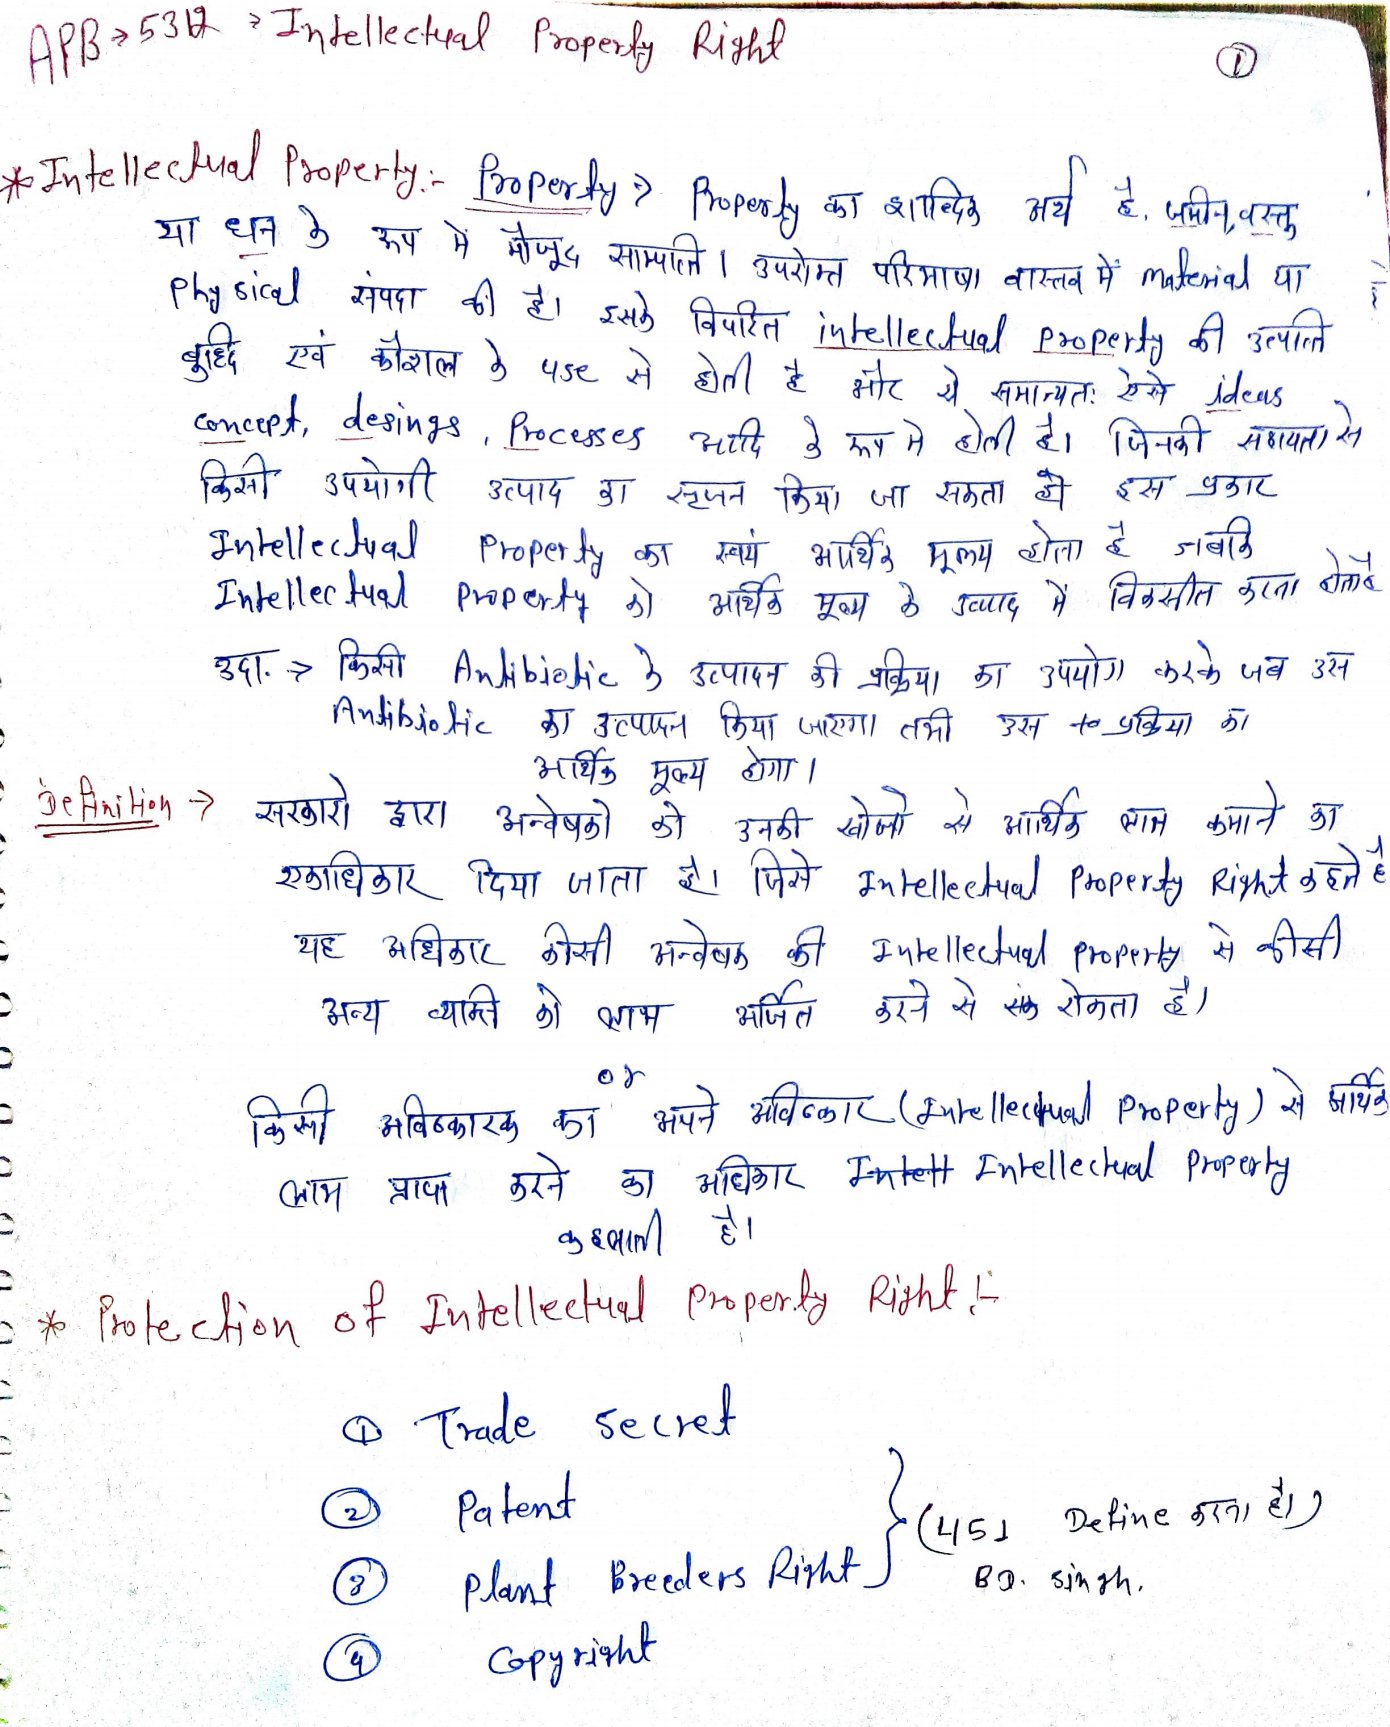 APB → 5312 → Intellectual Property Right
①
* Intellectual Property:- Property → Property का शाब्दिक अर्थ है. जमीन, वस्तु
या धन के रूप में मौजूद साम्पत्ति। उपरोक्त परिभाषा वास्तव में material या
Physical संपदा की है। इसके विपरित intellectual property की उत्पत्ति
बुध्दि एवं कौशल के use से होती है और ये समान्यतः ऐसे ideas
concept, desings, Processes आदि के रूप मे होती है। जिनकी सहायता से
किसी उपयोगी उत्पाद का सृजन किया जा सकता हो इस प्रकार
Intellectual Property का स्वयं आर्थिक मूल्य होता है जबकि
Intellectual Property को आर्थिक मूल्य के उत्पाद में विकसीत करना होता है
उदा. → किसी Antibiotic के उत्पादन की प्रक्रिया का उपयोग करके जब उस
Antibiotic का उत्पादन किया जाएगा तभी उस प्रक्रिया का
आर्थिक मूल्य होगा।
Definition → सरकारो द्वारा अन्वेषको को उनकी खोजो से आर्थिक लाभ कमाने का
एकाधिकार दिया जाता है। जिसे Intellectual Property Right कहते है
यह अधिकार कीसी अन्वेषक की Intellectual property से कीसी
अन्य व्यक्ति को लाभ अर्जित करने से रोकता है।
or
किसी अविष्कारक का अपने अविष्कार (Intellectual Property) से आर्थिक
लाभ प्राप्त करने का अधिकार Intell Intellectual Property
कहलाती है।
* Protection of Intellectual Property Right:-
① Trade secret
② Patent
③ Plant Breeders Right } (451 Define करना है।)
BD. singh.
④ Copyright